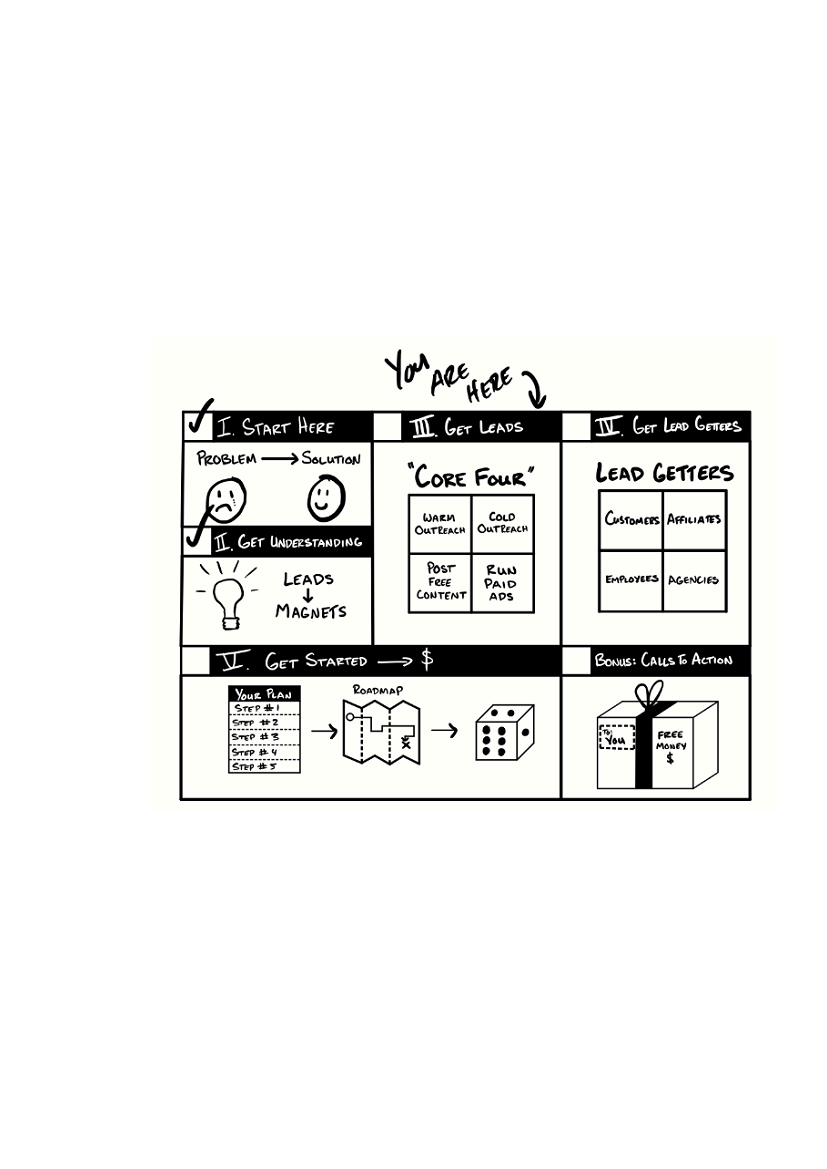 You ARE HERE
I. START HERE
PROBLEM → SOLUTION
II. GET UNDERSTANDING
LEADS
↓
MAGNETS
III. GET LEADS
"CORE FOUR"
WARM OUTREACH
COLD OUTREACH
POST FREE CONTENT
RUN PAID ADS
IV. GET LEAD GETTERS
LEAD GETTERS
CUSTOMERS
AFFILIATES
EMPLOYEES
AGENCIES
V. GET STARTED → $
YOUR PLAN
STEP #1
STEP #2
STEP #3
STEP #4
STEP #5
ROADMAP
X
BONUS: CALLS TO ACTION
TO:
YOU
FREE
MONEY
$